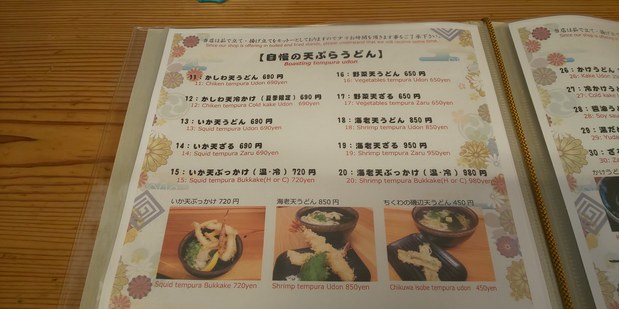 【自慢の天ぷらうどん】
Boasting tempura udon
11：かしわ天うどん 690円
11: Chiken tempura Udon 690yen
12：かしわ天冷かけ（夏季限定）690円
12: Chiken tempura Cold kake Udon 690yen
13：いか天うどん 690円
13: Squid tempura Udon 690yen
14：いか天ざる 690円
14: Squid tempura Zaru 690yen
15：いか天ぶっかけ（温・冷）720円
15: Squid tempura Bukkake(H or C) 720yen
16：野菜天うどん 650円
16: Vegetables tempura Udon 650yen
17：野菜天ざる 650円
17: Vegetables tempura Zaru 650yen
18：海老天うどん 850円
18: Shrimp tempura Udon 850yen
19：海老天ざる 950円
19: Shrimp tempura Zaru 950yen
20：海老天ぶっかけ（温・冷）980円
20: Shrimp tempura Bukkake(H or C) 980yen
いか天ぶっかけ 720円
海老天うどん 850円
ちくわの磯辺天うどん 450円
Squid tempura Bukkake 720yen
Shrimp tempura Udon 850yen
Chikuwa isobe tempura udon 450yen
26：かけうどん
27：冷かけう
30：ざ
かけうどん